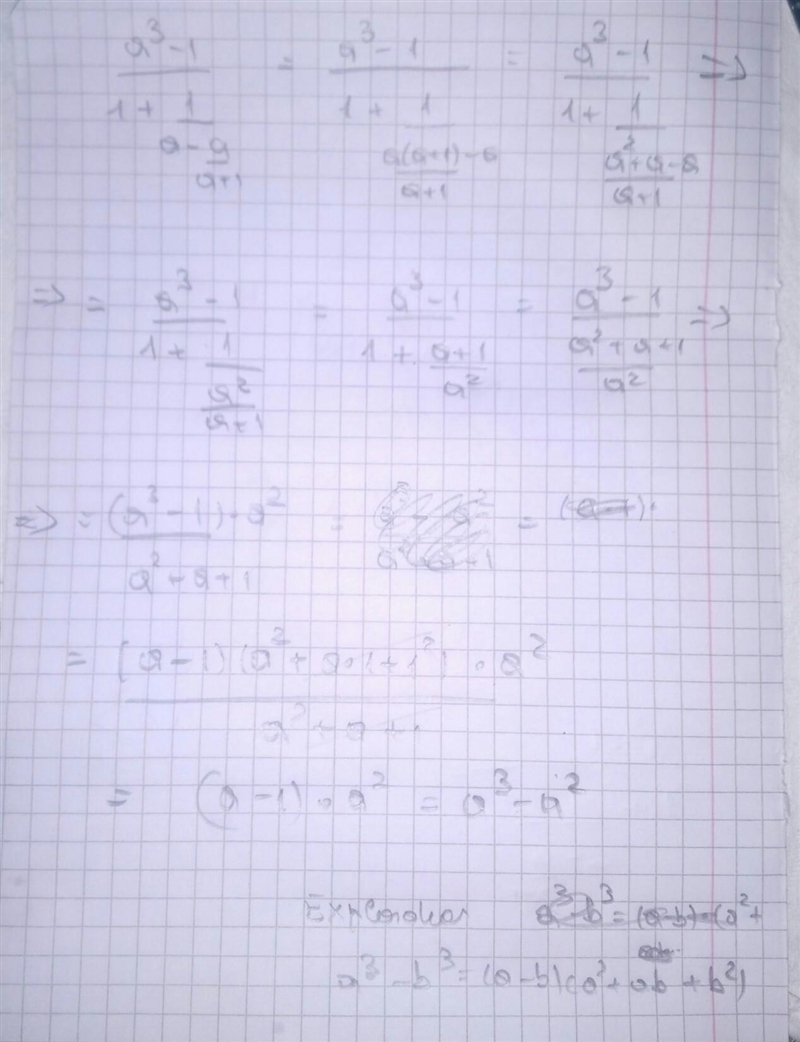 (a³ - 1)/(1 + 1/(a - a/(a+1))) = (a³ - 1)/(1 + 1/((a(a+1) - a)/(a+1))) = (a³ - 1)/(1 + 1/((a² + a - a)/(a+1))) =>
=> = (a³ - 1)/(1 + 1/(a²/(a+1))) = (a³ - 1)/(1 + (a+1)/a²) = (a³ - 1)/((a² + a + 1)/a²) =>
=> = ((a³ - 1) · a²)/(a² + a + 1) = =
= ((a - 1)(a² + a·1 + 1²) · a²)/(a² + a + 1)
= (a - 1) · a² = a³ - a²
a³ - b³ = (a-b) (a² +
a³ - b³ = (a-b)(a² + ab + b²)